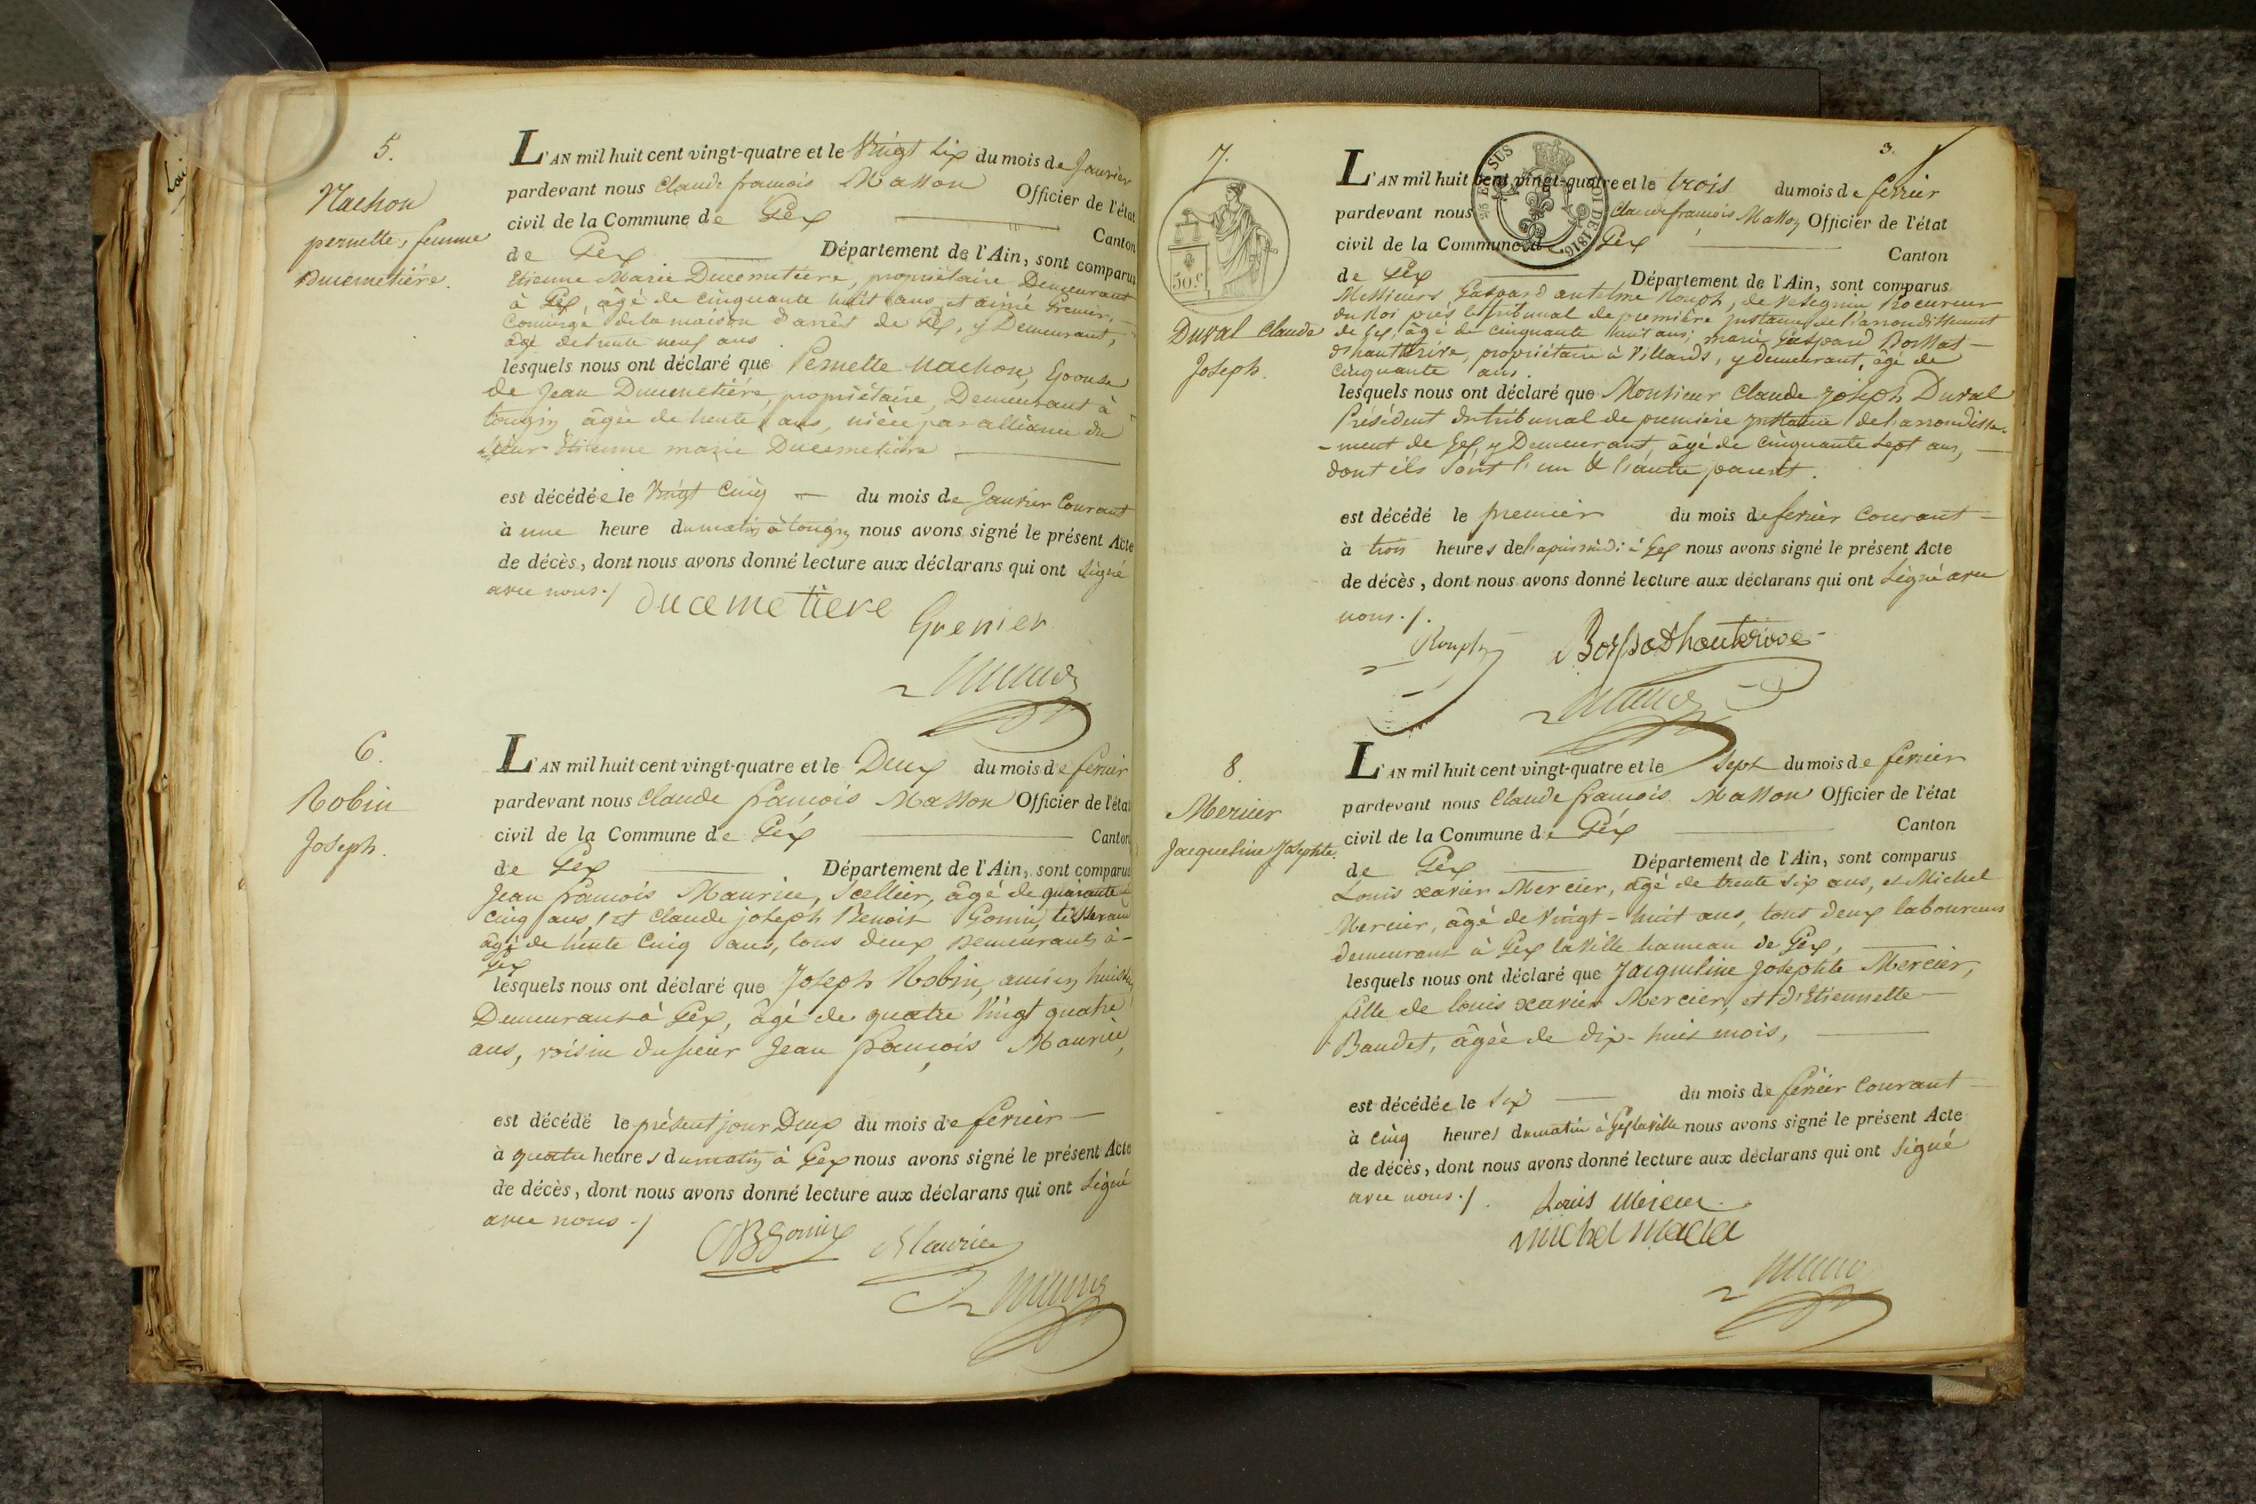 5.
Nachon
pernette, femme
Ducimetière.
L'AN mil huit cent vingt-quatre et le Vingt six du mois de Janvier
pardevant nous Claude françois Masson Officier de l'état
civil de la Commune de Gex Canton
de Gex Département de l'Ain, sont comparus
Etienne Marie Ducimetière, propriétaire Demeurant
à Gex, âgé de cinquante huit ans, et aimé Grenier,
Concierge de la maison d'arrêt de Gex, y Demeurant,
âgé de trente neuf ans
lesquels nous ont déclaré que Pernette Nachon, Epouse
de Jean Ducimetière, propriétaire, Demeurant à
tougin, âgée de trente ans, nièce par alliance du
sieur Etienne marie Ducimetière
est décédée le Vingt Cinq du mois de Janvier Courant
à une heure du matin à tougin nous avons signé le présent Acte
de décès, dont nous avons donné lecture aux déclarans qui ont Signé
avec nous./
ducemetiere
Grenier
6.
Robin
Joseph.
L'AN mil huit cent vingt-quatre et le Deux du mois de fevrier
pardevant nous Claude françois Masson Officier de l'état
civil de la Commune de Gex Canton
de Gex Département de l'Ain, sont comparus
Jean françois Maurice, Scellier, âgé de quarante
cinq ans, et Claude joseph Benoit Gonin, tisserand
âgé de trente Cinq ans, tous deux Demeurants à
Gex
lesquels nous ont déclaré que Joseph Robin, ancien huissier
Demeurant à Gex, âgé de quatre Vingt quatre
ans, voisin du sieur Jean françois Maurice,
est décédé le présent jour Deux du mois de fevrier
à quatre heures du matin à Gex nous avons signé le présent Acte
de décès, dont nous avons donné lecture aux déclarans qui ont Signé
avec nous./
Maurice
3.
7.
50 c.
Duval Claude
Joseph.
L'AN mil huit cent vingt-quatre et le trois du mois de fevrier
pardevant nous Claude françois Masson Officier de l'état
civil de la Commune de Gex Canton
de Gex Département de l'Ain, sont comparus
Messieurs Gaspard antelme Rouph, de Vesegnin Procureur
du Roi près le tribunal de première Instance de l'arrondissement
de Gex, âgé de cinquante huit ans; marie Gaspard Borssat
d'hauterive, propriétaire à Villards, y demeurant, âgé de
cinquante ans.
lesquels nous ont déclaré que Monsieur Claude Joseph Duval
Président du tribunal de première Instance de l'arrondisse-
-ment de Gex, y Demeurant, âgé de cinquante Sept ans,
dont ils sont l'un & l'autre parent.
est décédé le premier du mois de fevrier Courant
à trois heures de l'après midi à Gex nous avons signé le présent Acte
de décès, dont nous avons donné lecture aux déclarans qui ont Signé avec
nous./.
Rouph
Borssat d'hauterive
8.
Mercier
Jacqueline Josephte.
L'AN mil huit cent vingt-quatre et le Sept du mois de fevrier
pardevant nous Claude françois Masson Officier de l'état
civil de la Commune de Gex Canton
de Gex Département de l'Ain, sont comparus
Louis xavier Mercier, âgé de trente six ans, et Michel
Mercier, âgé de Vingt-huit ans, tous deux laboureurs
demeurant à Gex la Ville hameau de Gex,
lesquels nous ont déclaré que Jacqueline Josephte Mercier,
fille de Louis xavier Mercier, et d'Etiennette
Baudet, âgée de dix-huit mois,
est décédée le Six du mois de fevrier Courant
à cinq heures du matin à Gex la Ville nous avons signé le présent Acte
de décès, dont nous avons donné lecture aux déclarans qui ont Signé
avec nous./.
Louis Mercier